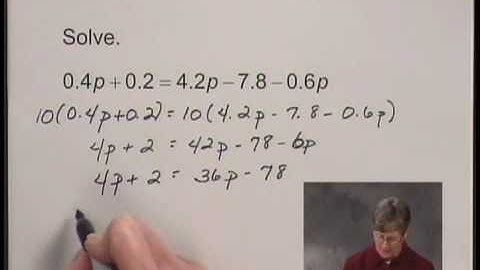 Solve.
0.4p+0.2=4.2p−7.8−0.6p
10(0.4p+0.2)=10(4.2p-7.8-0.6p)
4p+2 = 42p-78-6p
4p+2 = 36p-78